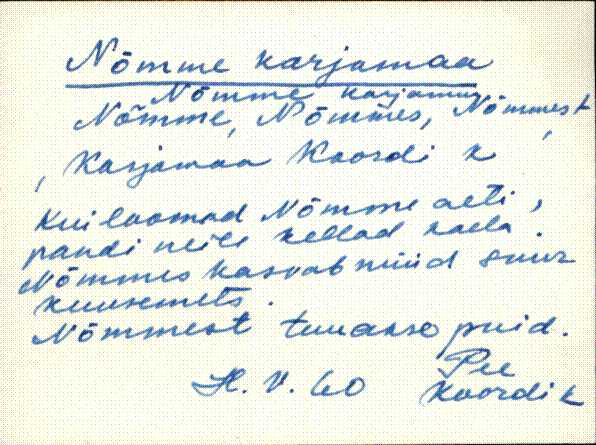 Nõmme karjamaa
Nõmme karjamaa
Nõmme, Nõmmes, Nõmmest,
, Karjamaa Koordi k
Kui loomad Nõmme aeti,
pandi neile kellad kaela.
Nõmmes kasvab nüüd suur
kuusemets.
Nõmmest tuuakse puid.
H. V. 60 Pee
Koordi k